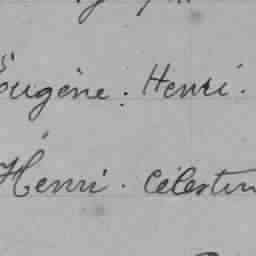 Eugène. Henri.
Henri. Célestin